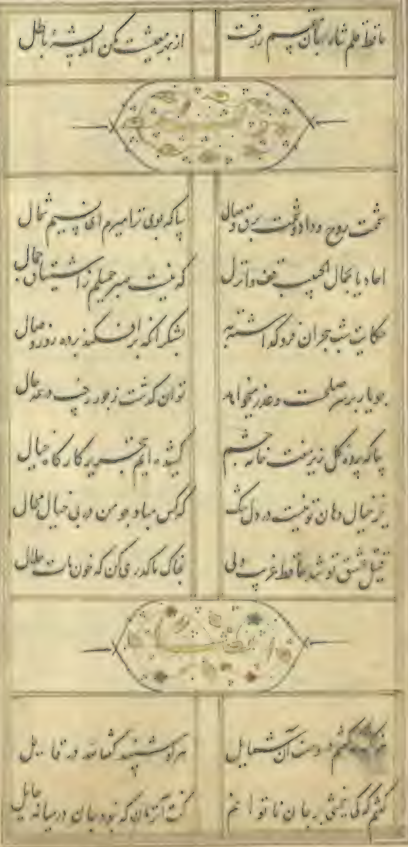 حافظ قلم شاه جهان مقسم رزقست از بهر معیشت مکن اندیشهٔ باطل
شممت روح وداد و شمت برق وصال بیا که بوی ترا میرم ای نسیم شمال
احادیا بجمال الحبیب قف وانزل که نیست صبر جمیلم ز اشتیاق جمال
حکایت شب هجران فروگذاشته به بشکر آنکه برافکند پرده روز وصال
چو یار بر سر صلحست و عذر میخواهد توان گذشت ز جور رقیب در همه حال
بیا که پرده گلریز هفت خانه چشم کشیده‌ایم بتحریر کارگاه خیال
بجز خیال دهان تو نیست در دل تنگ که کس مباد چو من در پی خیال محال
قتیل عشق تو شد حافظ غریب ولی بخاک ما گذری کن که خون مات حلال
گفتم در وصف آن شمایل هر کو شنید گفتا لله در قایل
گفتم که کی ببخشی بر جان ناتوانم گفت آنزمان که نبود جان در میانه حایل